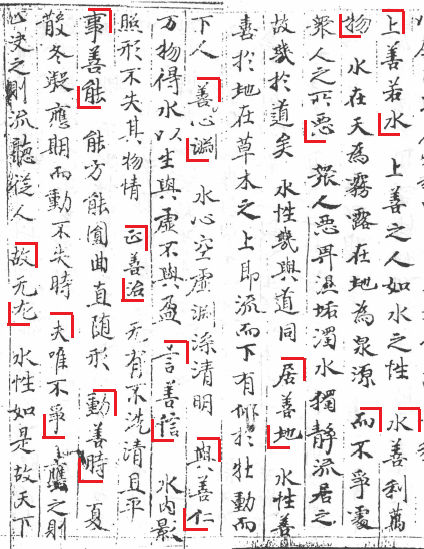 上善若水 上善之人如水之性 水善利萬
物 水在天為霧露在地為泉源 而不爭處
衆人之所惡 衆人惡畏濕垢濁水獨靜流居之
故幾於道矣 水性幾與道同 居善地 水性善
喜於地在草木之上即流而下有似於牝動而
下人 善心淵 水心空虛淵深清明 與善仁
万物得水以生與虛不與盈 言善信 水内影
照形不失其物情 正善治 无有不洗清且平
事善能 能方能圓曲直随形 動善時 夏
散冬凝應期而動不失時 夫唯不爭 壅之則
止决之則流聽從人 故无尤 水性如是故天下